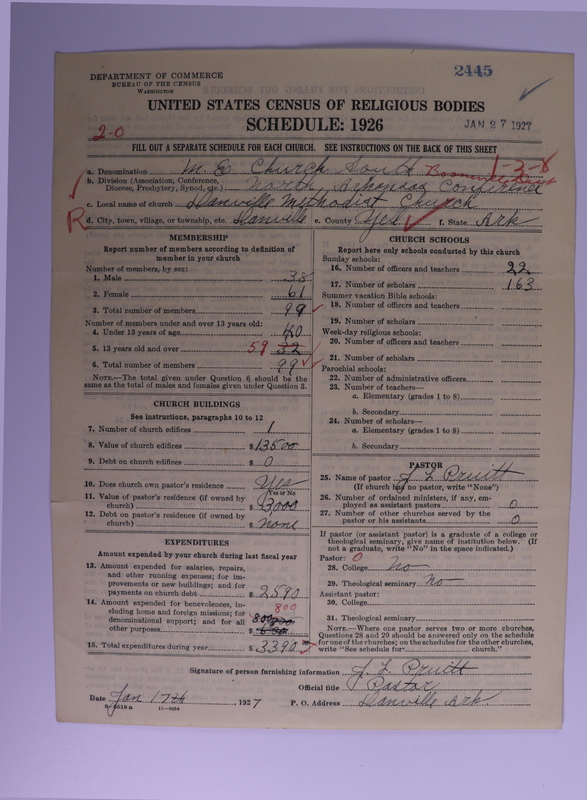 2445
DEPARTMENT OF COMMERCE
BUREAU OF THE CENSUS
WASHINGTON
UNITED STATES CENSUS OF RELIGIOUS BODIES
SCHEDULE: 1926
JAN 27 1927
2-0
FILL OUT A SEPARATE SCHEDULE FOR EACH CHURCH. SEE INSTRUCTIONS ON THE BACK OF THIS SHEET
1-3-8
a. Denomination M. E. Church South
b. Division (Association, Conference, Diocese, Presbytery, Synod, etc.) North Arkansas
R
c. Local name of church Danville Methodist Church
d. City, town, village, or township, etc. Danville e. County Yell f. State Ark
MEMBERSHIP
Report number of members according to definition of member in your church
Number of members, by sex:
1. Male 38
2. Female 61
3. Total number of members 99
Number of members under and over 13 years old:
4. Under 13 years of age 40
5. 13 years old and over 59
6. Total number of members 99
NOTE.—The total given under Question 6 should be the same as the total of males and females given under Question 3.
CHURCH BUILDINGS
See instructions, paragraphs 10 to 12
7. Number of church edifices 1
8. Value of church edifices $ 13500
9. Debt on church edifices $ 0
10. Does church own pastor's residence Yes
Yes or No
11. Value of pastor's residence (if owned by church) $ 3000
12. Debt on pastor's residence (if owned by church) $ none
EXPENDITURES
Amount expended by your church during last fiscal year
13. Amount expended for salaries, repairs, and other running expenses; for improvements or new buildings; and for payments on church debt $ 2590
14. Amount expended for benevolences, including home and foreign missions; for denominational support; and for all other purposes $ 800
800
15. Total expenditures during year $ 3390
CHURCH SCHOOLS
Report here only schools conducted by this church
Sunday schools:
16. Number of officers and teachers 22
17. Number of scholars 163
Summer vacation Bible schools:
18. Number of officers and teachers
19. Number of scholars
Week-day religious schools:
20. Number of officers and teachers
21. Number of scholars
Parochial schools:
22. Number of administrative officers
23. Number of teachers—
a. Elementary (grades 1 to 8)
b. Secondary
24. Number of scholars—
a. Elementary (grades 1 to 8)
b. Secondary
PASTOR
25. Name of pastor J L Pruitt
(If church has no pastor, write "None")
26. Number of ordained ministers, if any, employed as assistant pastors 0
27. Number of other churches served by the pastor or his assistants 0
If pastor (or assistant pastor) is a graduate of a college or theological seminary, give name of institution below. (If not a graduate, write "No" in the space indicated.)
Pastor: 0
28. College No
29. Theological seminary No
Assistant pastor:
30. College
31. Theological seminary
NOTE.—Where one pastor serves two or more churches, Questions 28 and 29 should be answered only on the schedule for one of the churches; on the schedules for the other churches, write "See schedule for church."
Signature of person furnishing information J. L. Pruitt
Official title Pastor
Date Jan 17th, 1927 P. O. Address Danville Ark.
11—9054